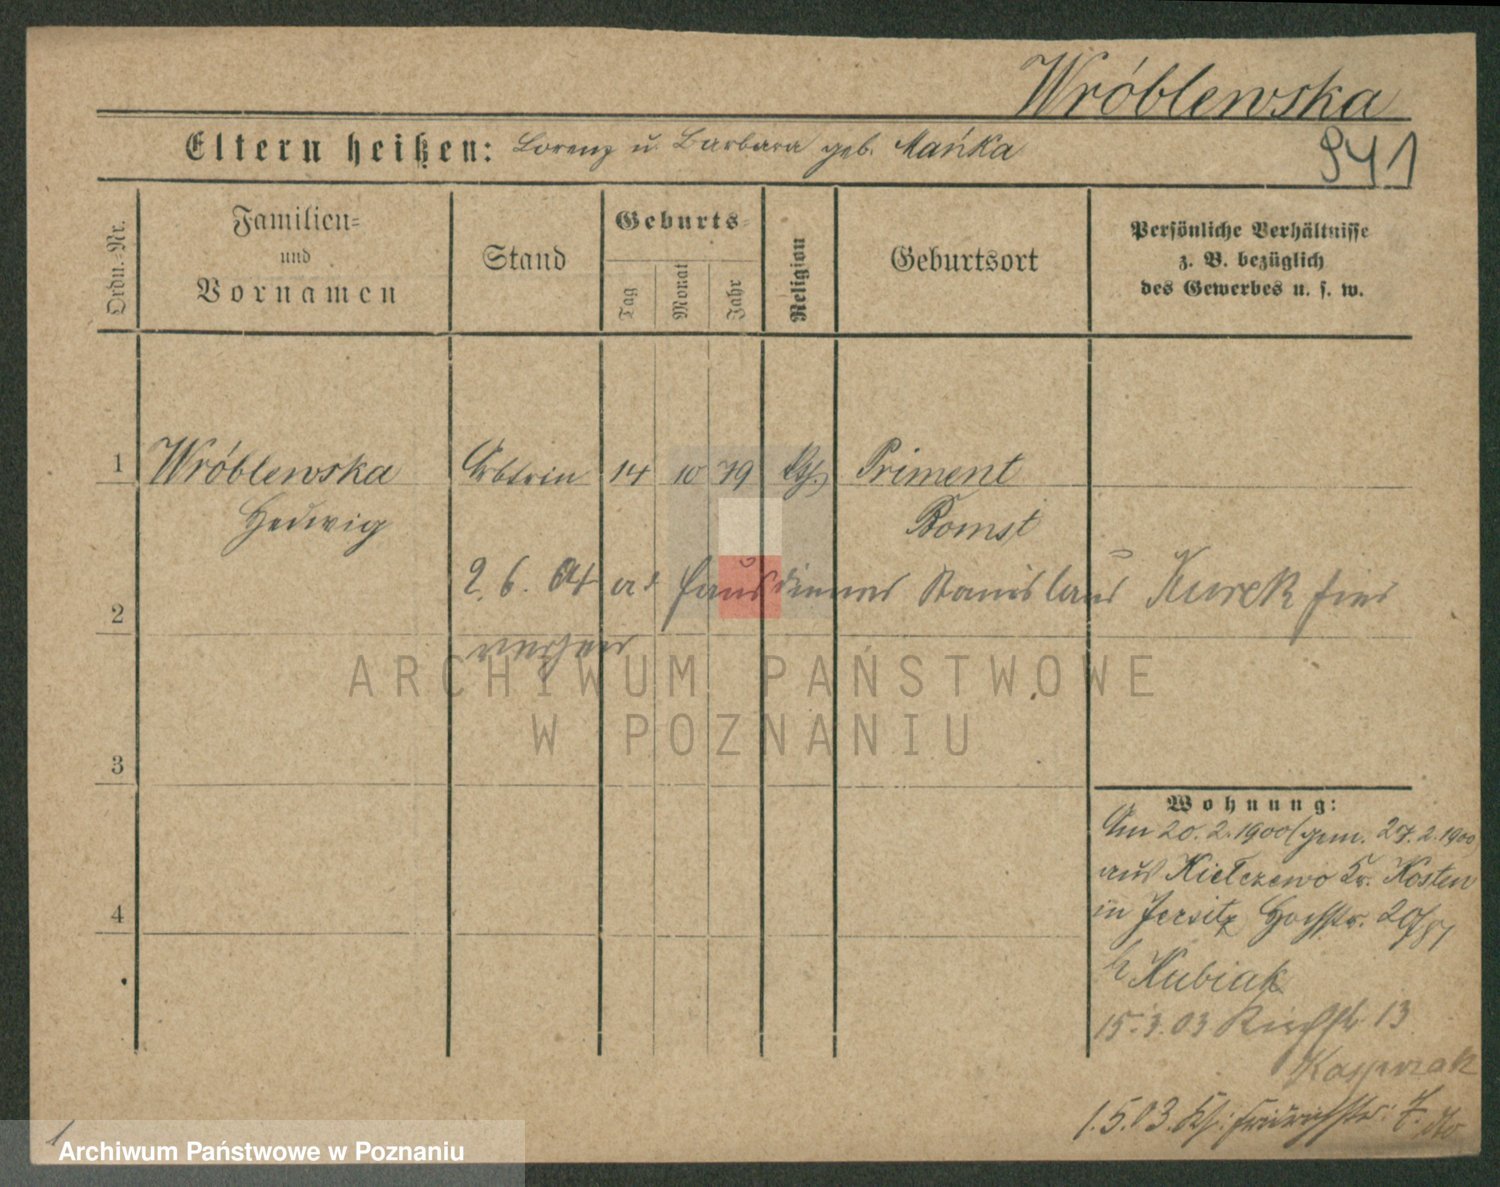 Wróblewska
Eltern heißen: Lorenz u. Barbara geb. Mańka
941
Ordn.-Nr.
Familien-
und
Vornamen
Stand
Geburts-
Tag
Monat
Jahr
Religion
Geburtsort
Persönliche Verhältnisse
z. B. bezüglich
des Gewerbes u. s. w.
1 Wróblewska Arbtrin 14 10 79 Kth. Priment
Hedwig Bomst
2.6.04 a. d. Hausdiener Stanislaus Kurek hier
2
verheir
3
Wohnung:
Am 20.2.1900 (gem. 27.2.1900)
aus Kiełczewo Kr. Kosten
in Jersitz Hochstr. 20/81
b Kubiak
4
15.3.03 13
Kasprzak
1.5.03 7.
1
ARCHIWUM PAŃSTWOWE
W POZNANIU
Archiwum Państwowe w Poznaniu